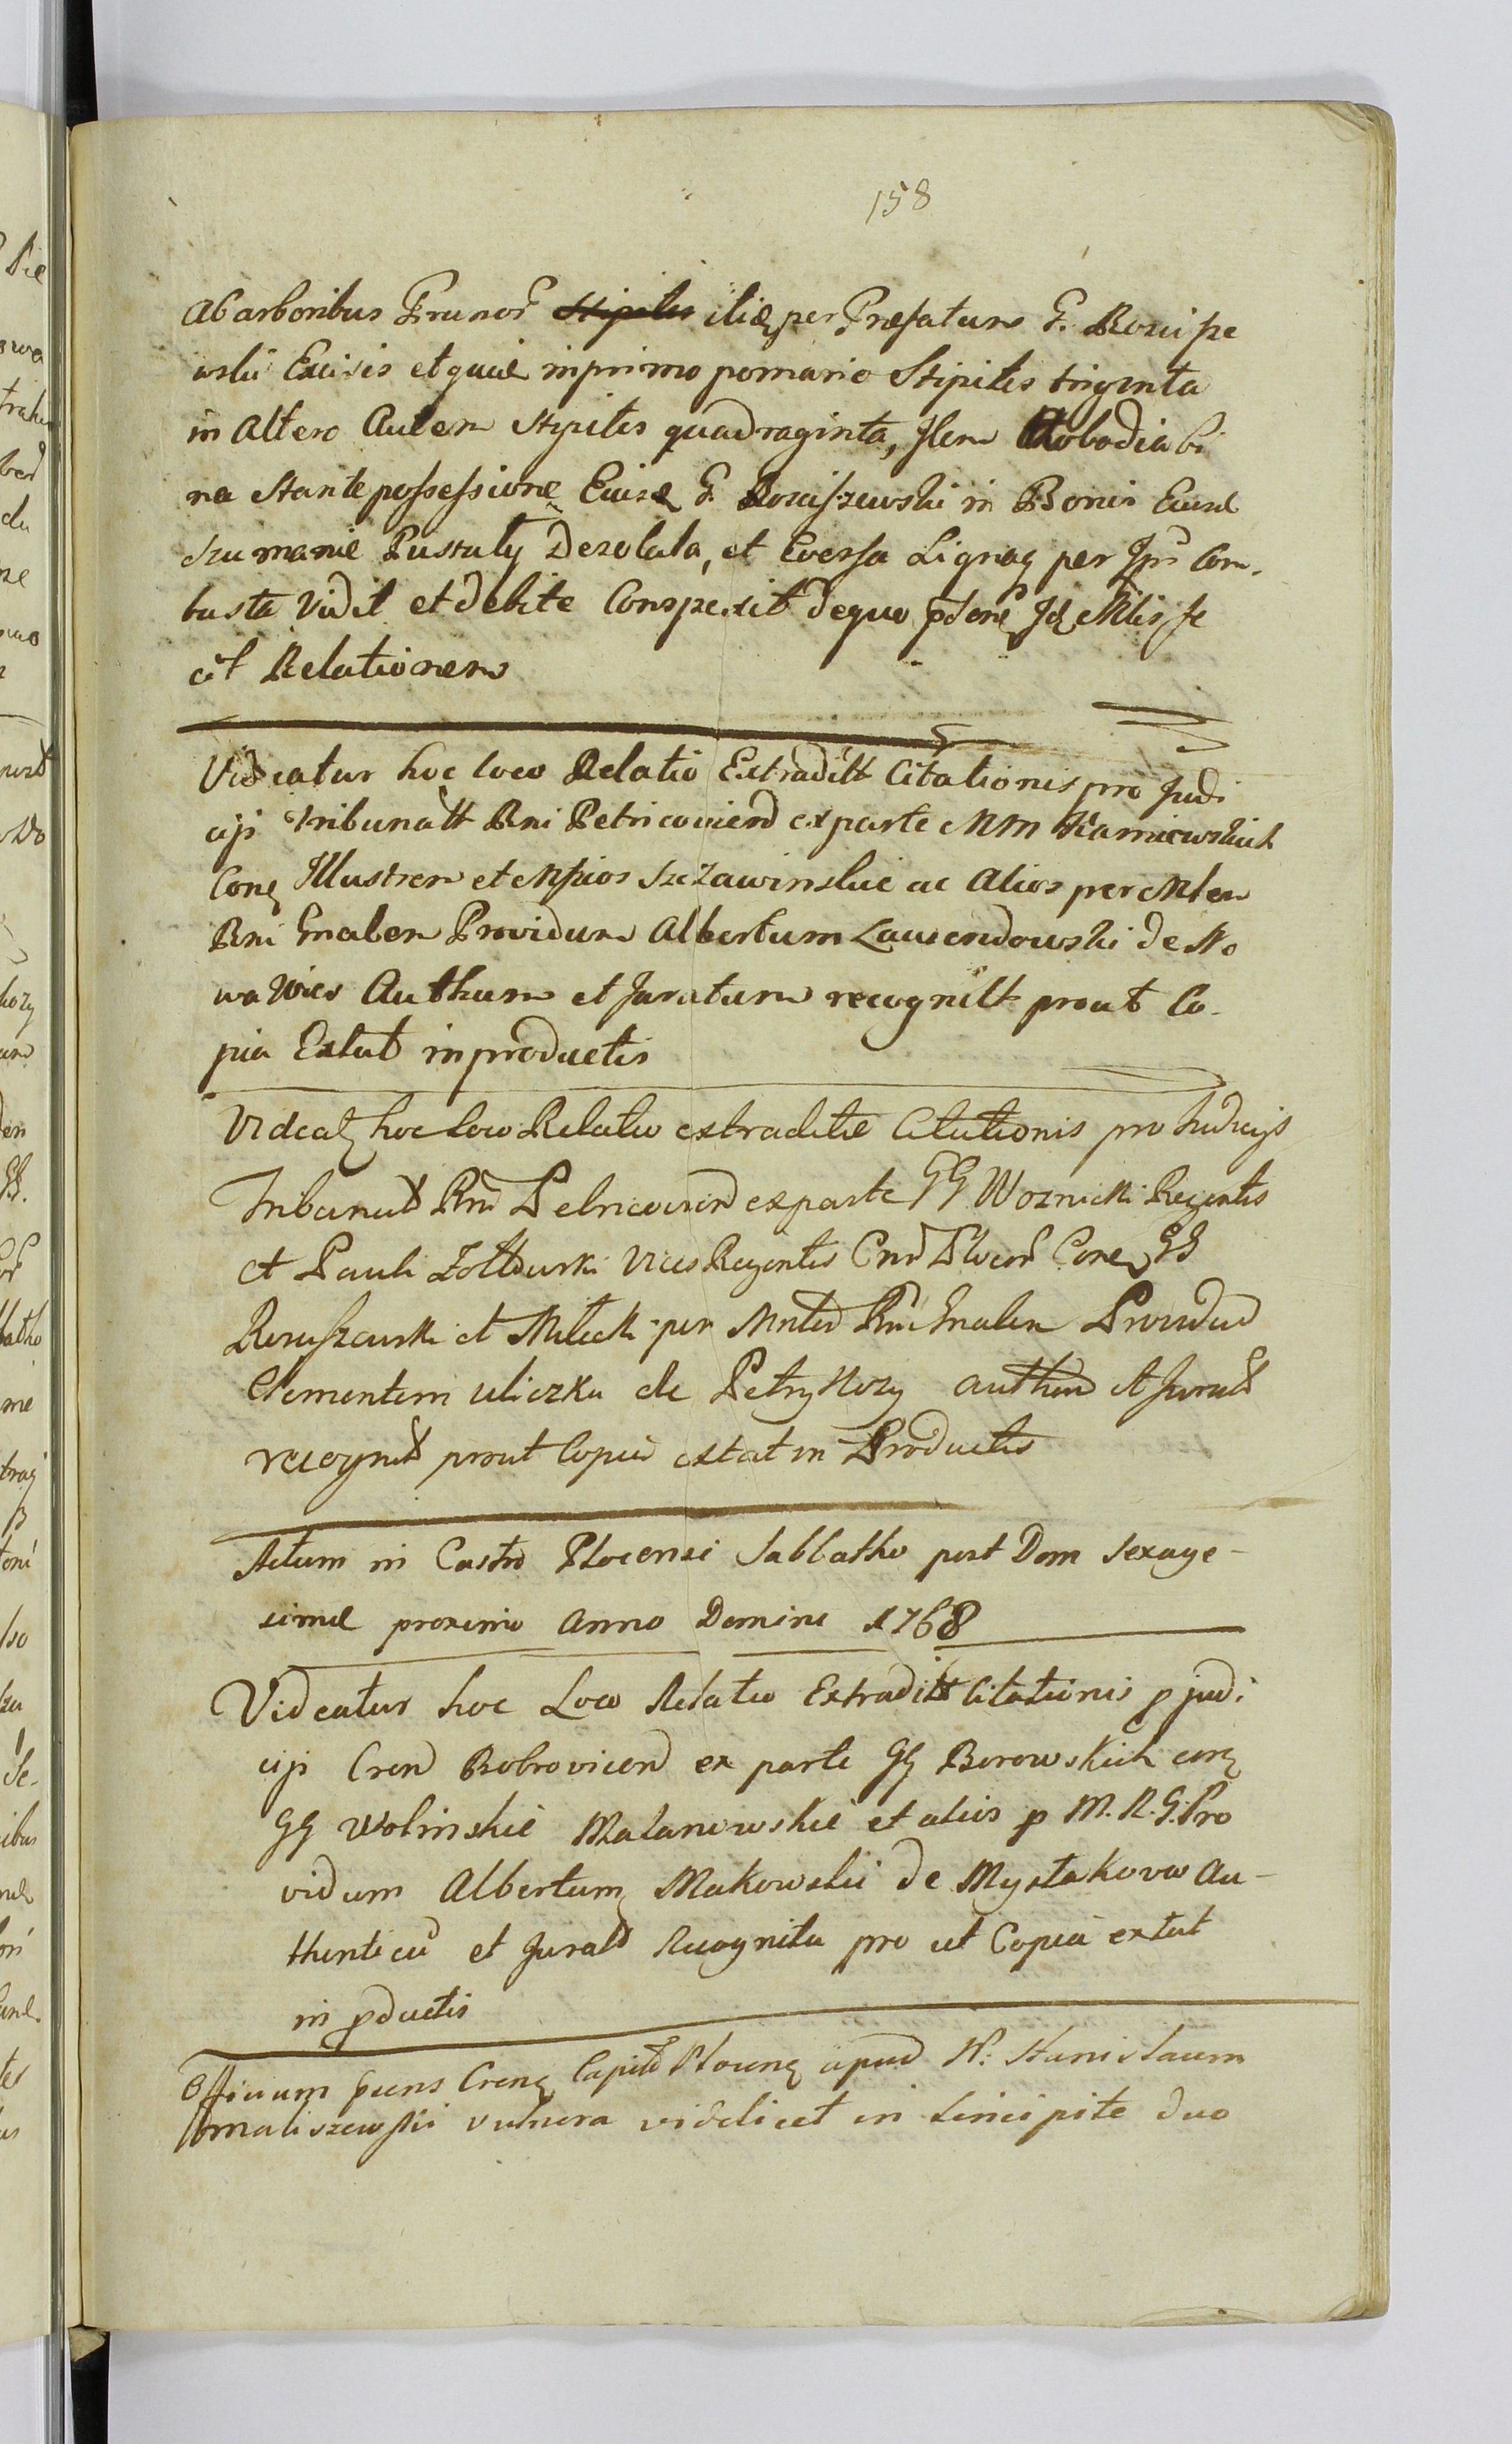 158
ab arboribus Prunor Stipites itidq per Præfatum G. Rosciszewski
wski Excisis et quid in primo pomario Stipites triginta
in Altero Autem Stipites quadraginta, Item Chobodia bi
na Stante possessione Ejusd G. Rosciszewski in Bonis Ejusd
Szumanie Pustuly Dezolata, et Eversa Lignaq per Ipm Com-
busta Vidit et debite Conspexit de quo pdone Idq Mlis fe
cit Relationem
Videatur hoc loco Relatio Extraditt Citationis pro Judi
cijs Tribunalt Rni Petricovien ex parte MM Karniewskich
Conq Illustrem et Mfcios Szczawinskie ac Alios per Mlem
Rni Gnalem Providum Albertum Lawendowski de No
wa Wies Authum et Juratum recognitt prout Co-
pia Extat in productis
Videatq hoc loco Relatio extraditæ Citationis pro Judicijs
Tribunal Rni Petricovien ex parte GG Woznicki Regentis
et Pauli Zoltowski Vices Regentis Cnr Plocen Conq GG
Rosciszewski et Milecki per Mnlem Rni Gnalem Providum
Clementem Uliczka de Petrykozy authum et Jurat
recognit prout Copia extat in Productis
Actum in Castro Plocensi Sabbatho post Dom Sexage-
simæ proximo Anno Domini 1768
Videatur hoc Loco Relatio Extraditt Citationis p judi
cijs Cren Bobrovicen ex parte GG Borowskich conq
GG Wolinskie Malanowskie et alios p M. R. G. Pro
vidum Albertum Makowski de Mystkowo Au-
thenticum et Jurat Recognita pro ut Copia extat
in pductis
Officium puns Crenq Capitl Plocenq apud N: Stanislaum
Tomaliszewski vulnera videlicet in Sincipite duo